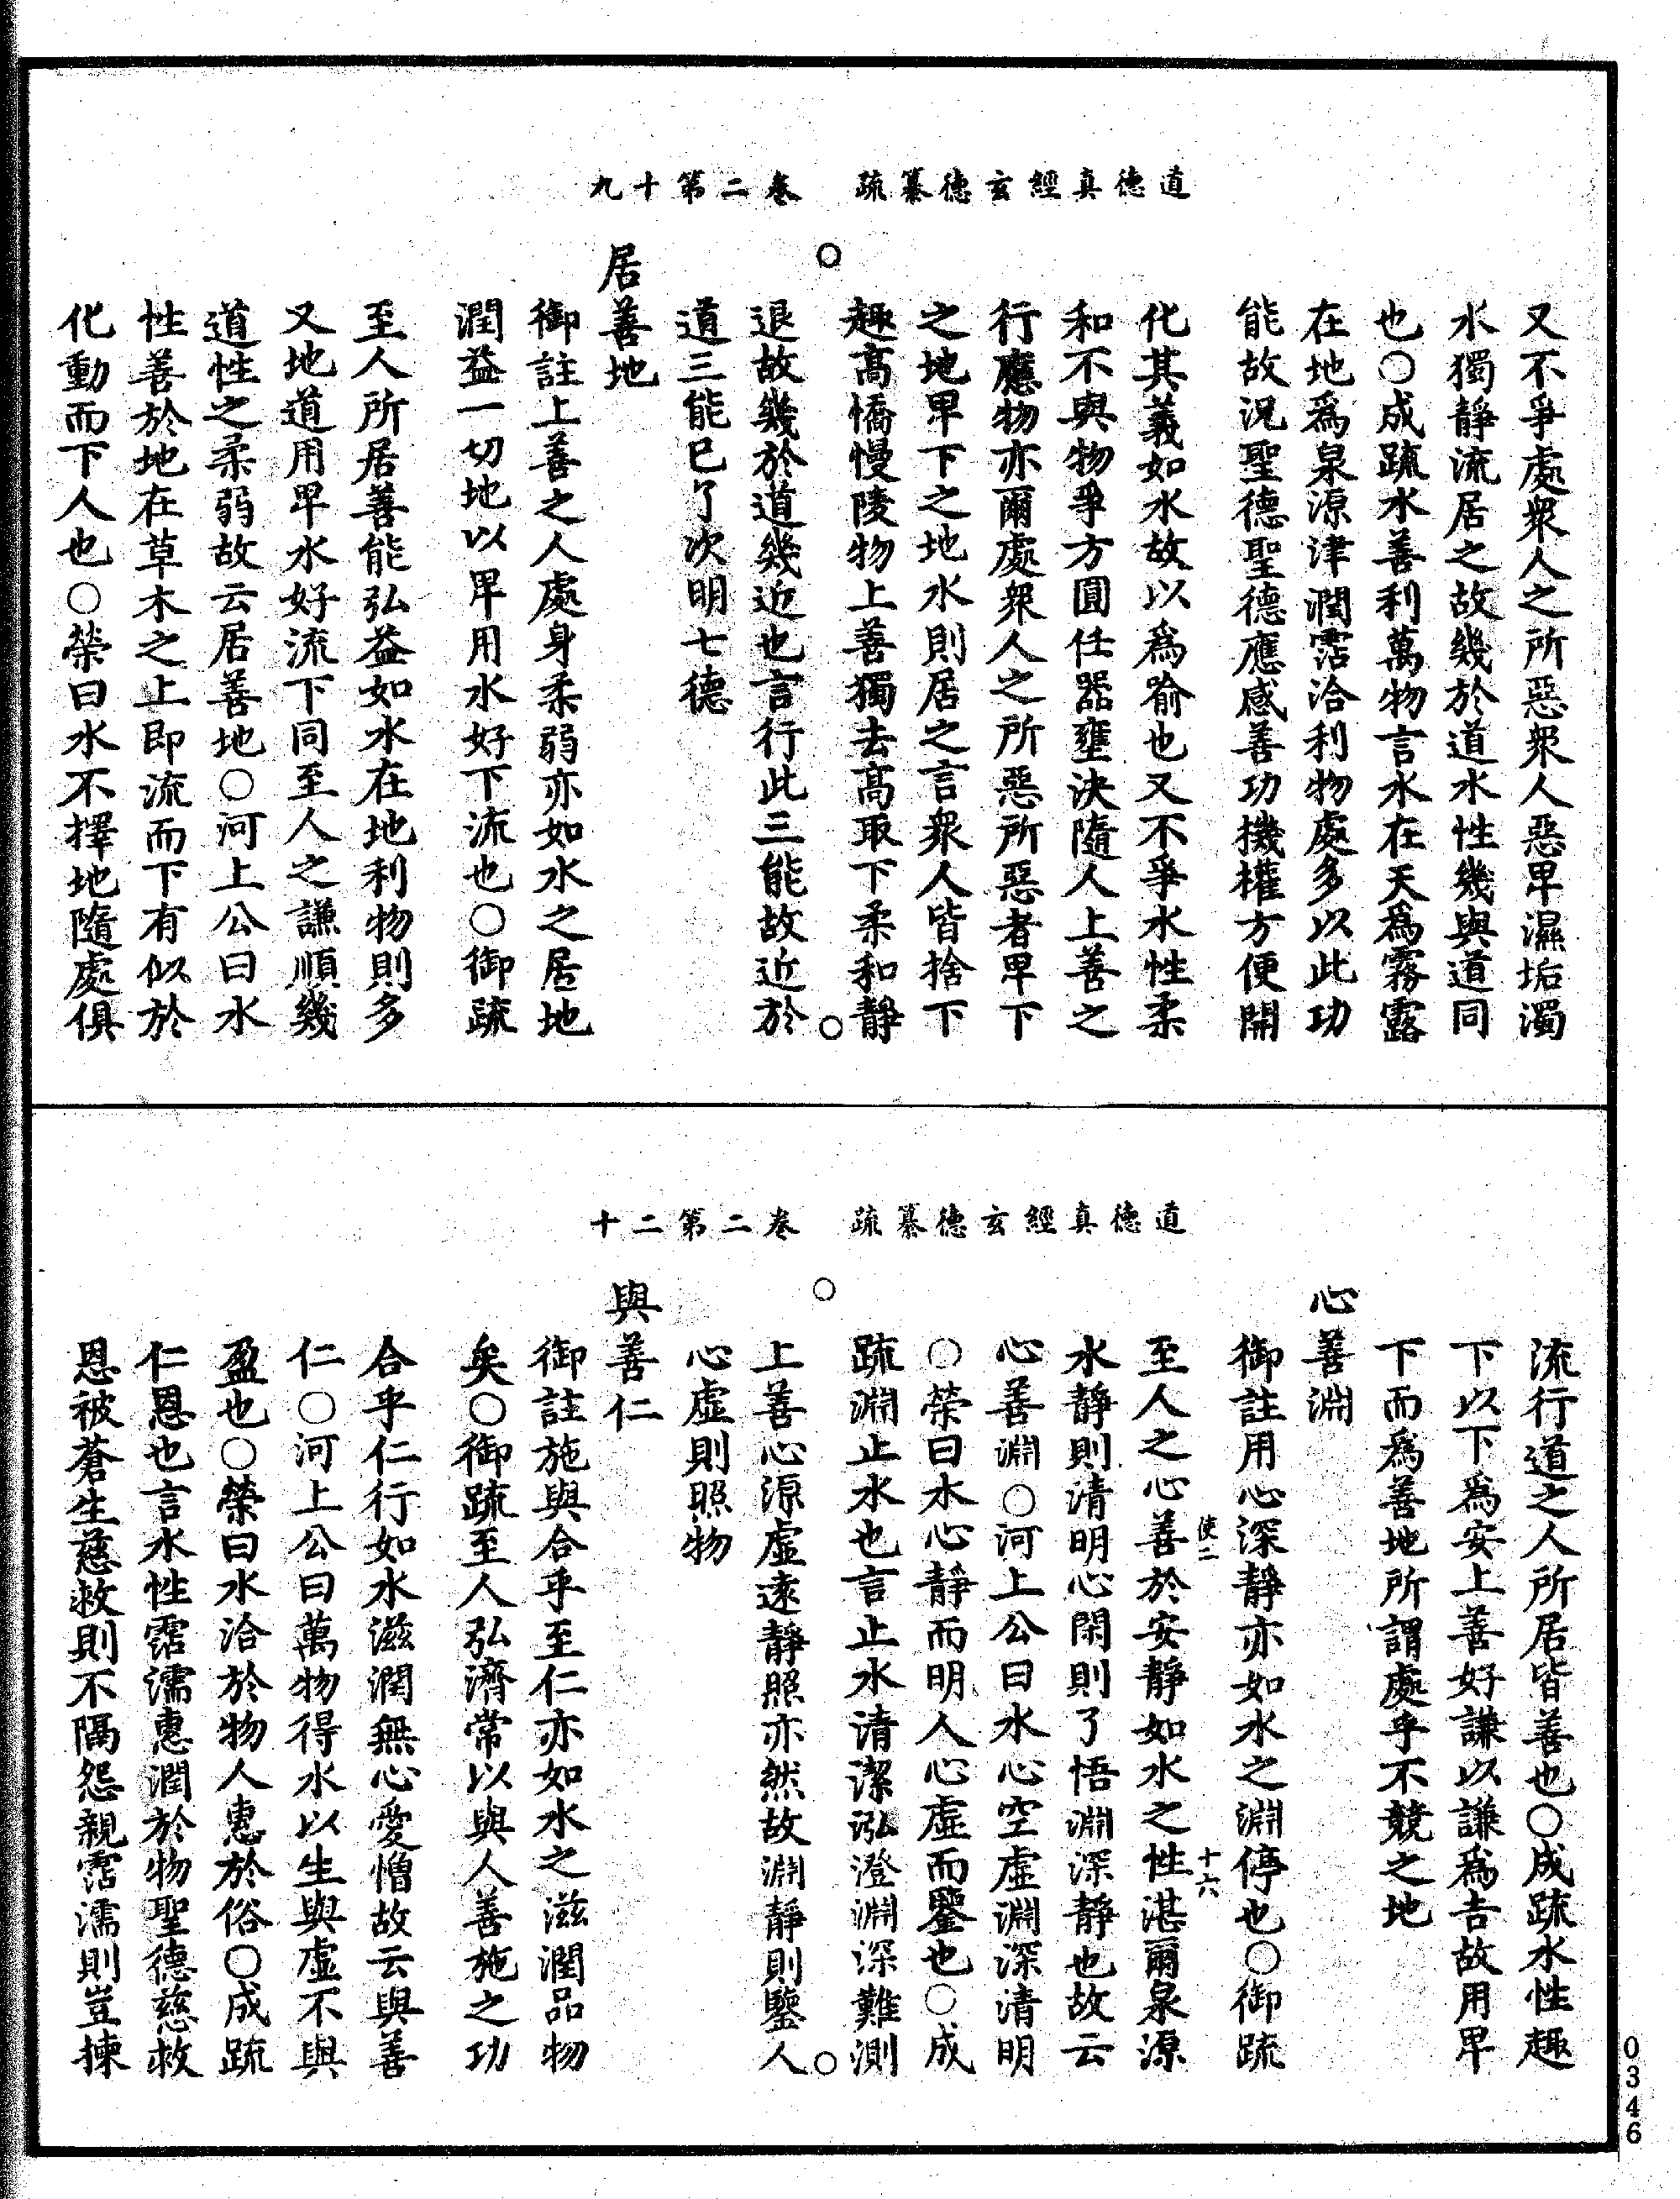 道德真經玄德纂疏　卷二第十九
又不爭處衆人之所惡衆人惡卑濕垢濁
水獨靜流居之故幾於道水性幾與道同
也○成疏水善利萬物言水在天爲霧露
在地爲泉源津潤霑洽利物處多以此功
能故況聖德聖德應感善功機權方便開
化其義如水故以爲喻也又不爭水性柔
和不與物爭方圓任器壅決隨人上善之
行應物亦爾處衆人之所惡所惡者卑下
之地卑下之地水則居之言衆人皆捨下
趣高憍慢陵物上善獨去高取下柔和靜
○　○
退故幾於道幾近也言行此三能故近於
道三能已了次明七德
居善地
御註上善之人處身柔弱亦如水之居地
潤益一切地以卑用水好下流也○御疏
至人所居善能弘益如水在地利物則多
又地道用卑水好流下同至人之謙順幾
道性之柔弱故云居善地○河上公曰水
性善於地在草木之上即流而下有似於
化動而下人也○榮曰水不擇地隨處俱
道德真經玄德纂疏　卷二第二十
流行道之人所居皆善也○成疏水性趣
下以下爲安上善好謙以謙爲吉故用卑
下而爲善地所謂處乎不競之地
心善淵
御註用心深靜亦如水之淵停也○御疏
使二　十六
至人之心善於安靜如水之性湛爾泉源
水靜則清明心閑則了悟淵深靜也故云
心善淵○河上公曰水心空虛淵深清明
○榮曰水心靜而明人心虛而鑒也○成
疏淵止水也言止水清潔泓澄淵深難測
○　○
上善心源虛遠靜照亦然故淵靜則鑒人
心虛則照物
與善仁
御註施與合乎至仁亦如水之滋潤品物
矣○御疏至人弘濟常以與人善施之功
合乎仁行如水滋潤無心愛憎故云與善
仁○河上公曰萬物得水以生與虛不與
盈也○榮曰水洽於物人惠於俗○成疏
仁恩也言水性霑濡惠潤於物聖德慈救
恩被蒼生慈救則不隔怨親霑濡則豈揀
0346